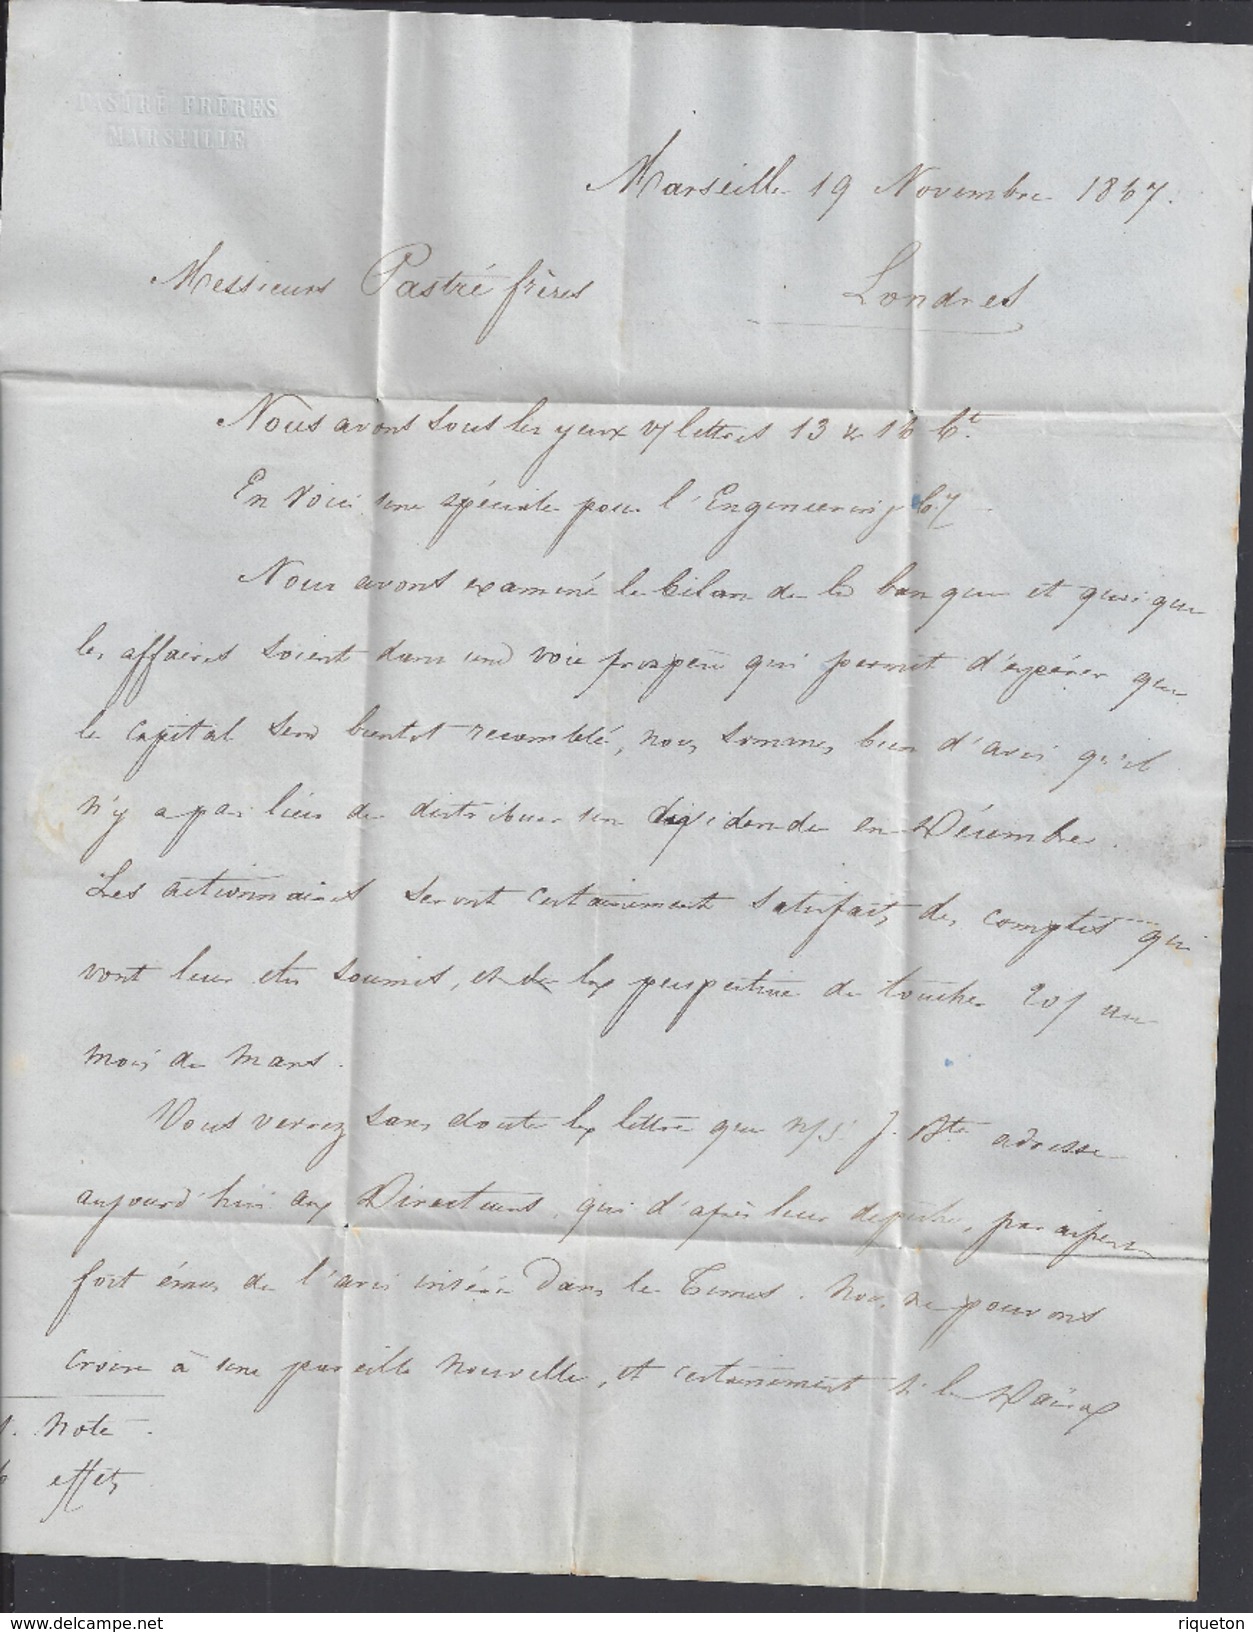 PASTRÉ FRÈRES
MARSEILLE
Marseille 19 Novembre 1867.
Messieurs Pastré frères
Londres
Nous avons sous les yeux v/ lettres 13 & 16 Ct.
En voici une spéciale pour l'Engineering Cy
Nous avons examiné le bilan de la banque et quoique
les affaires soient dans une voie prospère qui permet d'espérer que
le capital sera bientôt recomblé, nous sommes bien d'avis qu'il
n'y a pas lieu de distribuer un dividende en Décembre.
Les actionnaires seront certainement satisfaits des comptes qui
vont leur être soumis, et de la perspective de toucher 20/ au
mois de Mars.
Vous verrez sans doute la lettre que n/S. J. Bte adresse
aujourd'hui aux Directeurs, qui d'après leur dépêche, paraissent
fort émus de l'avis inséré dans le Times. Nous ne pouvons
croire à une pareille nouvelle, et certainement si le Daïra
1. Note
6 effets
riqueton
www.delcampe.net